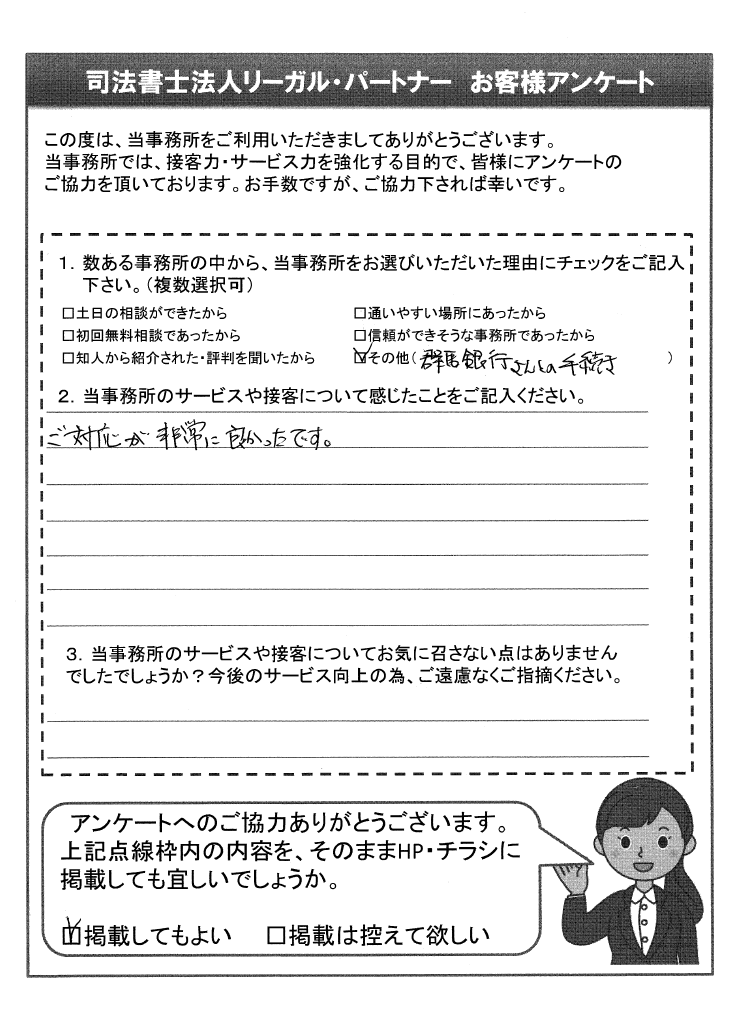 司法書士法人リーガル・パートナー お客様アンケート
この度は、当事務所をご利用いただきましてありがとうございます。
当事務所では、接客力・サービス力を強化する目的で、皆様にアンケートの
ご協力を頂いております。お手数ですが、ご協力下されば幸いです。
1. 数ある事務所の中から、当事務所をお選びいただいた理由にチェックをご記入
下さい。(複数選択可)
□土日の相談ができたから □通いやすい場所にあったから
□初回無料相談であったから □信頼ができそうな事務所であったから
□知人から紹介された・評判を聞いたから ☑その他(群馬銀行さんとの手続き)
2. 当事務所のサービスや接客について感じたことをご記入ください。
ご対応が非常に良かったです。
3. 当事務所のサービスや接客についてお気に召さない点はありません
でしたでしょうか?今後のサービス向上の為、ご遠慮なくご指摘ください。
アンケートへのご協力ありがとうございます。
上記点線枠内の内容を、そのままHP・チラシに
掲載しても宜しいでしょうか。
☑掲載してもよい □掲載は控えて欲しい